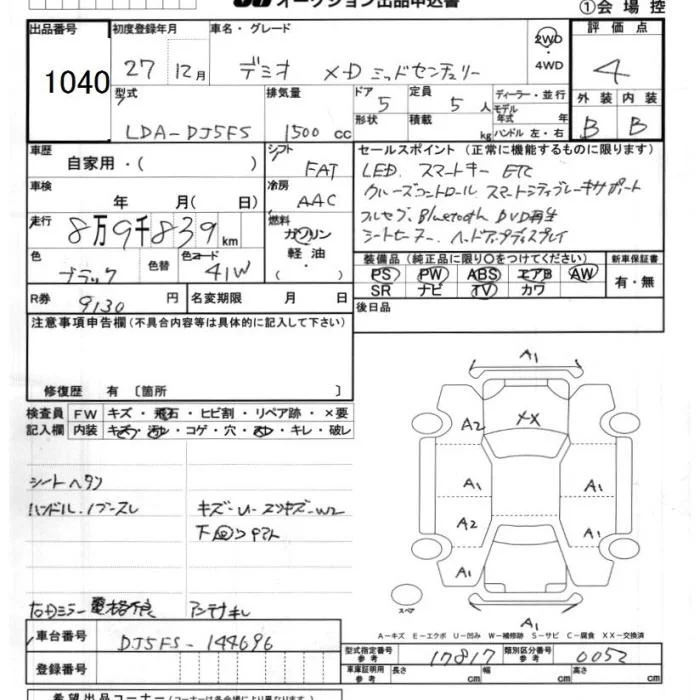 オークション出品申込書
①会場控
出品番号
1040
初度登録年月
27 12月
車名・グレード
デミオ XD ミッドセンチュリー
2WD
・
4WD
評価点
4
型式
LDA-DJ5FS
排気量
1500 cc
ドア 5
形状
定員 5 人
積載 kg
ディーラー・並行
モデル年式 年
ハンドル 左・右
外装 内装
B B
車歴
自家用・( )
シフト
FAT
車検
年 月( 日)
冷房
AAC
走行
8万9千839 km
燃料
ガソリン
軽油
・( )
色
ブラック
色替
色コード
41W
R券 9130 円
名変期限 月 日
セールスポイント (正常に機能するものに限ります)
LED. スマートキー ETC
クルーズコントロール スマートシティブレーキサポート
フルセグ. Bluetooth DVD再生
シートヒーター. ヘッドアップディスプレイ
装備品 (純正品に限り○をつけてください)
PS PW ABS エアB AW
SR ナビ TV カワ
新車保証書
有・無
後日品
注意事項申告欄(不具合内容等は具体的に記入して下さい)
修復歴 有 〔箇所 〕
検査員
記入欄
FW キズ・飛石・ヒビ割・リペア跡・×要
内装 キズ・汚レ・コゲ・穴・スレ・キレ・破レ
シートヘタリ
ハンドル.ノブースレ
キズ-U-スリキズ-W2
下回りサビ
右ミラー電格不良 アンテナキレ
A1
A2
XX
A1
A1
A2
A1
A1
A1
スペア
A-キズ E-エクボ U-凹み W-補修跡 S-サビ C-腐食 XX-交換済
車台番号
DJ5FS-144696
登録番号
型式指定番号
参考
17817
類別区分番号
参考
0052
車庫証明用
参考
長さ cm
幅 cm
高さ cm
希望出品コーナー(コーナーは各会場により異なります。)